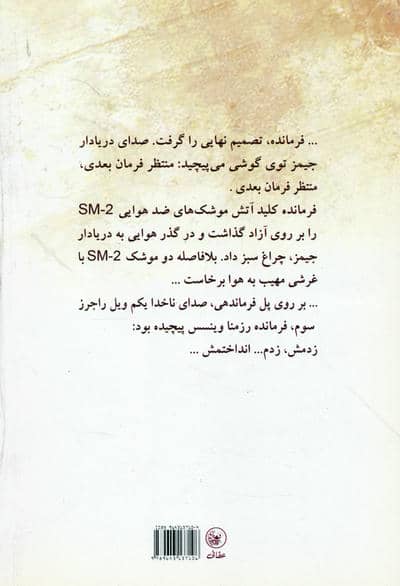 ... فرمانده، تصمیم نهایی را گرفت. صدای دریادار
جیمز توی گوشی می‌پیچید: منتظر فرمان بعدی،
منتظر فرمان بعدی .
فرمانده کلید آتش موشک‌های ضد هوایی SM-2
را بر روی آزاد گذاشت و در گذر هوایی به دریادار
جیمز، چراغ سبز داد. بلافاصله دو موشک SM-2 با
غرشی مهیب به هوا برخاست ...
... بر روی پل فرماندهی، صدای ناخدا یکم ویل راجرز
سوم، فرمانده رزمنا وینسس پیچیده بود:
زدمش، زدم... انداختمش ...